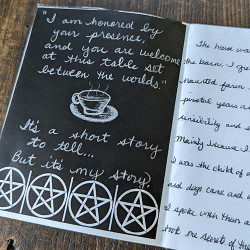 "I am honored by
your presence,
and you are welcome
at this table set
between the worlds."
It's a short story
to tell...
But it's my story.
The house was
the barn. I gre
haunted farm
pivotal years o
sensibility and
Mainly because I
I was the child of a
and dogs came and
I spoke with them a